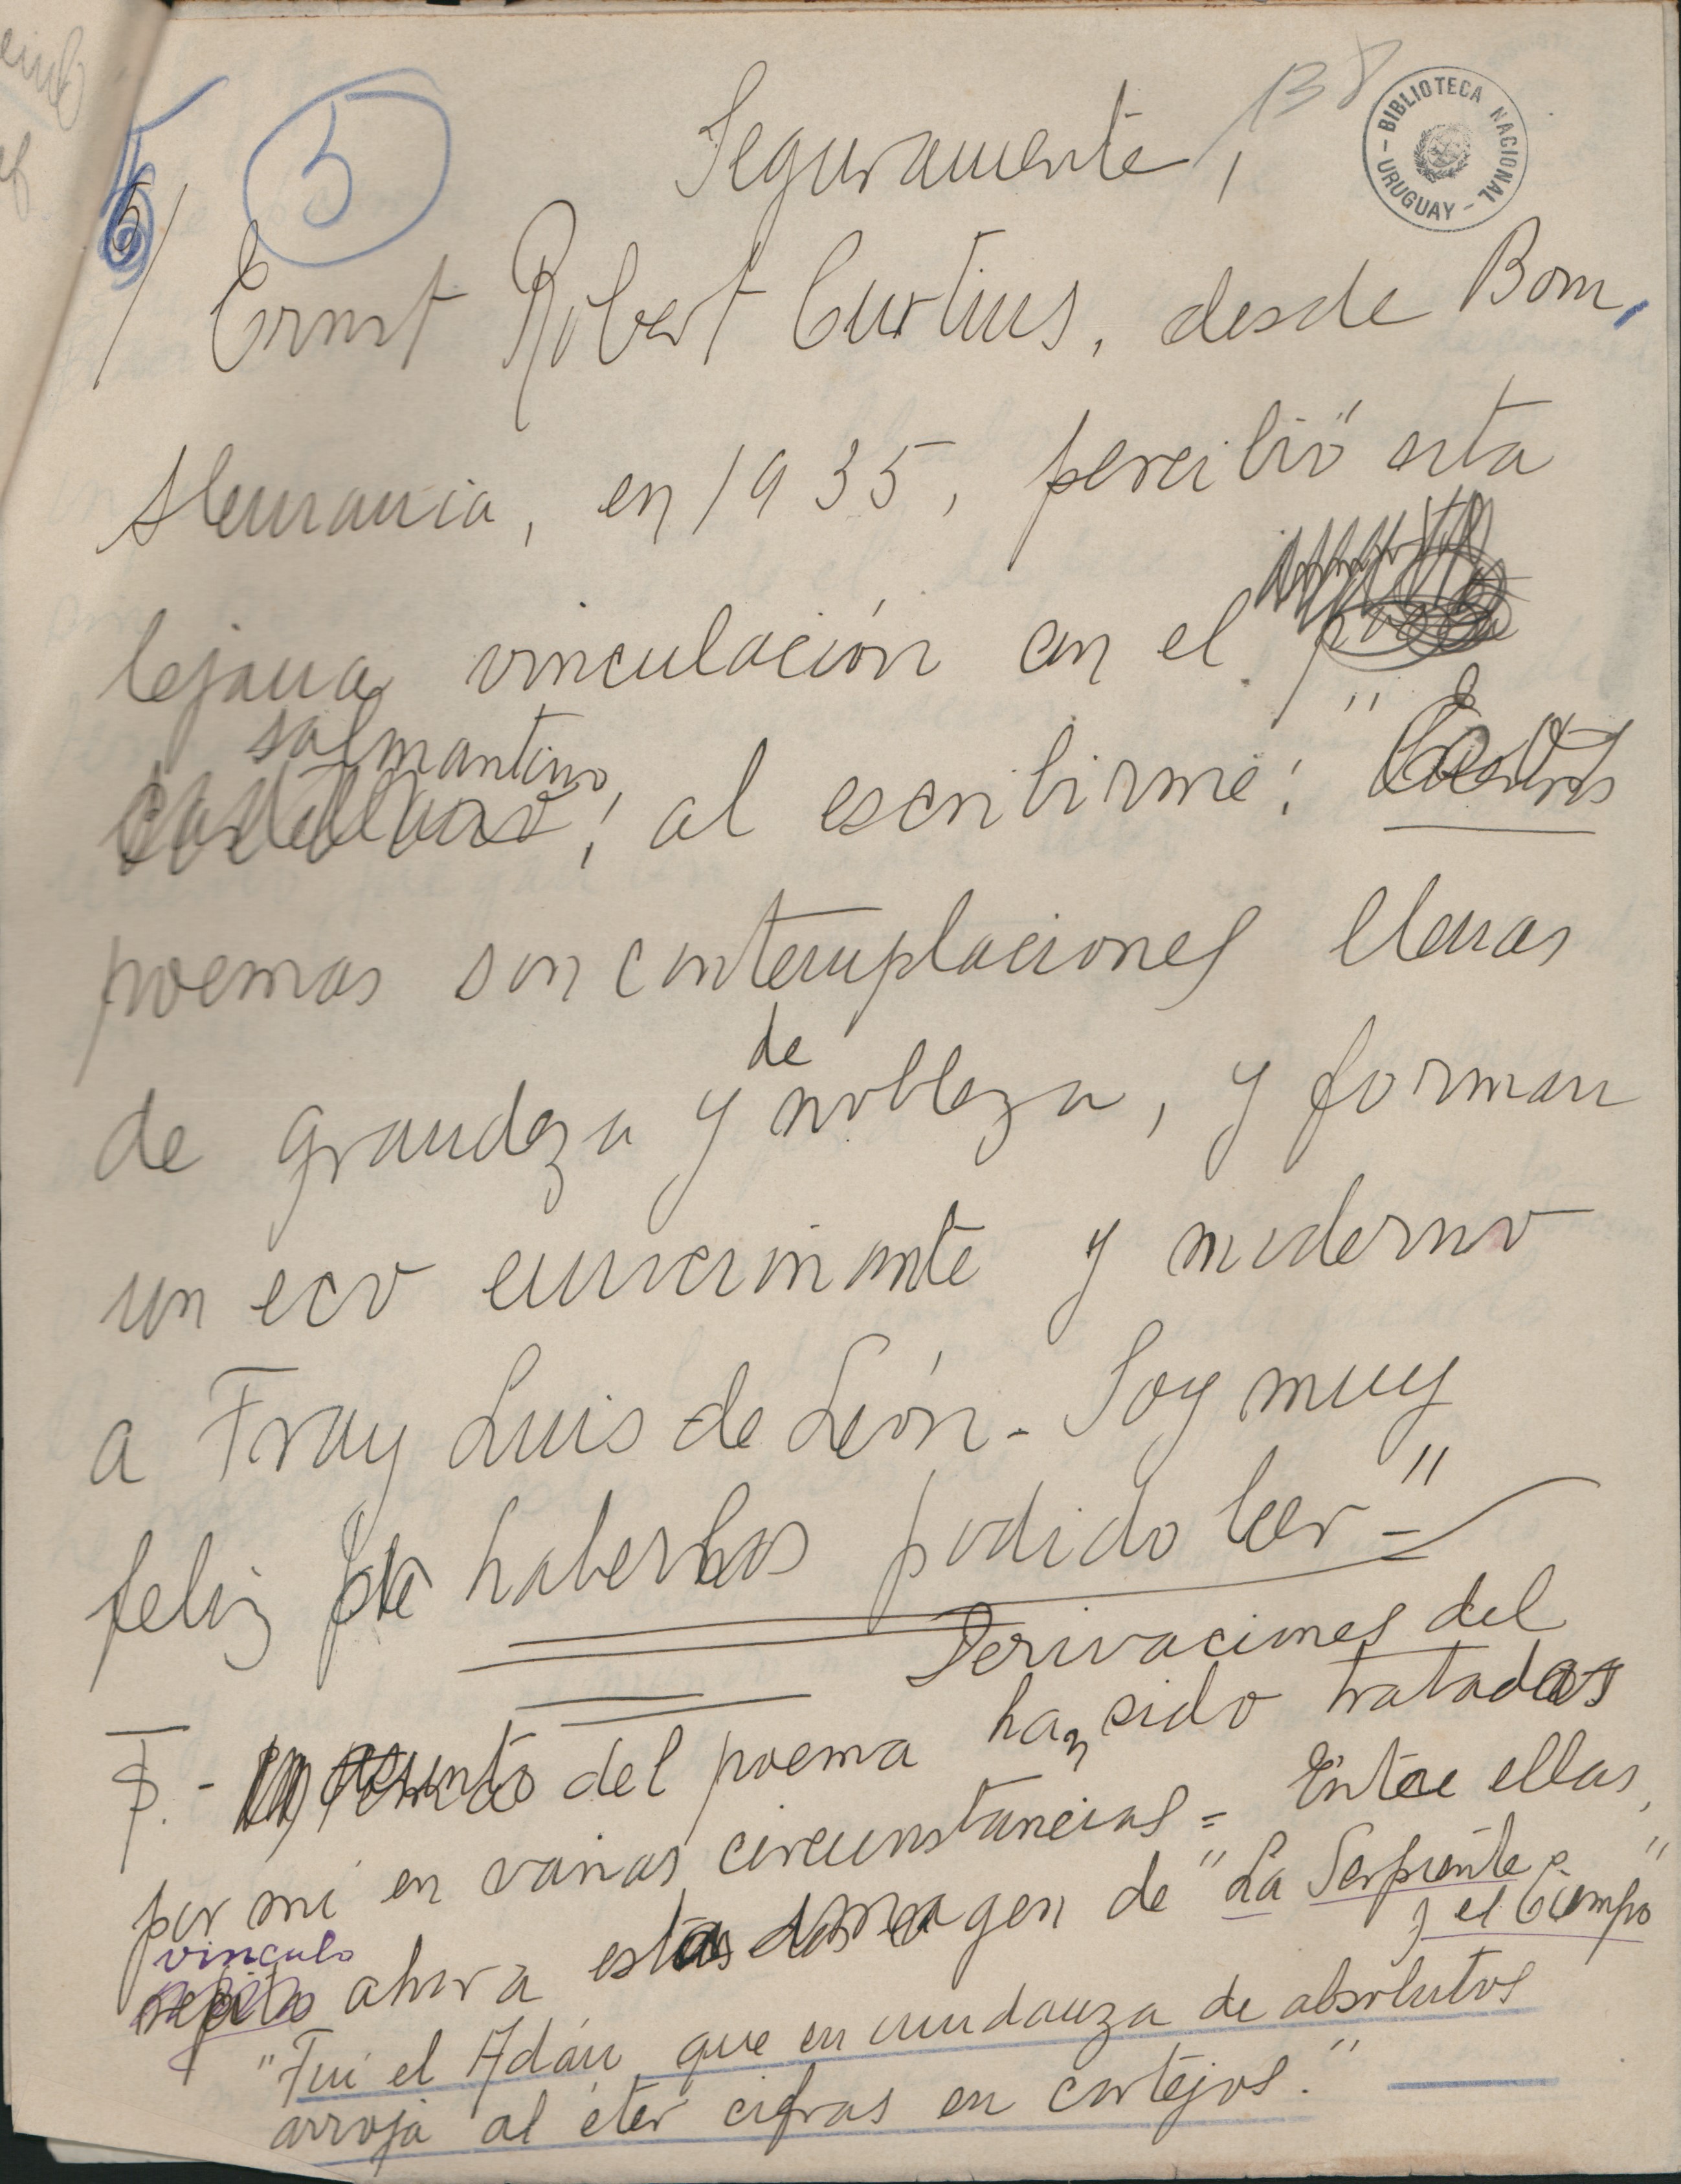 138
BIBLIOTECA NACIONAL - URUGUAY -
5 5
Seguramente,
Ernst Robert Curtius, desde Bonn,
Alemania, en 1935, percibió esta
lejana vinculación con el
salmantino,
castellano, al escribirme: "Estos
poemas son contemplaciones llenas
de grandeza y de nobleza, y forman
un eco emocionante y moderno
a Fray Luis de León - Soy muy
feliz de haberlos podido leer" =
Derivaciones del
asunto del poema han sido tratadas
por mi en varias circunstancias = Entre ellas,
vinculo
repito ahora esta imagen de "La Serpiente
y el Tiempo"
"Fui el Adán que en mudanza de absolutos
arroja al éter cifras en cortejos."